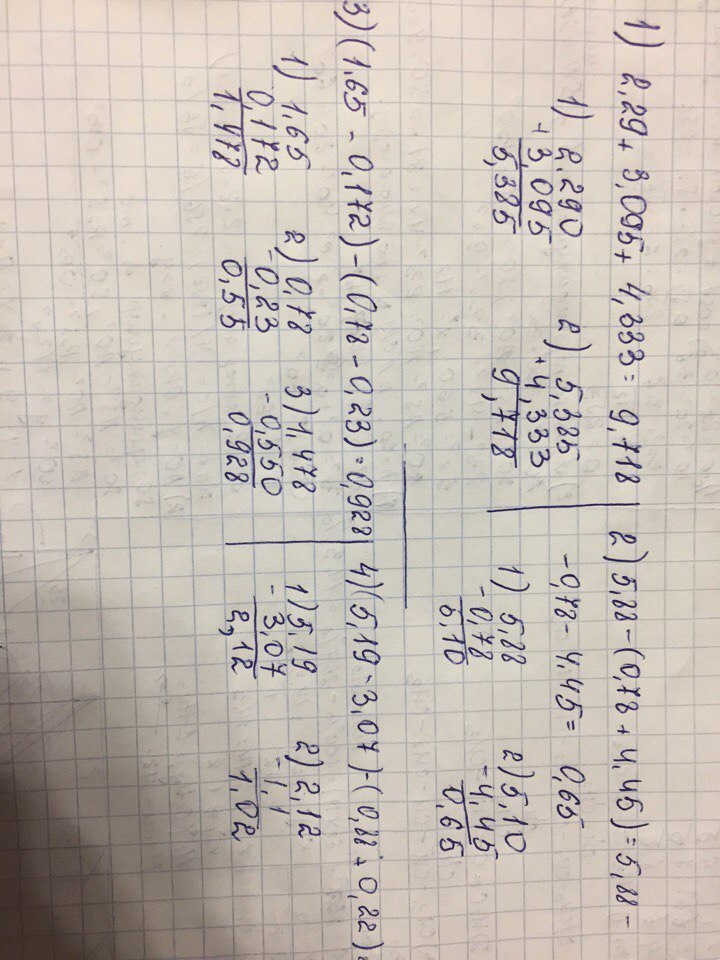 1) 2,29 + 3,095 + 4,333 = 9,718
1) 2,290 2) 5,385
+ 3,095 + 4,333
5,385 9,718
2) 5,88 - (0,78 + 4,45) = 5,88 -
- 0,78 - 4,45 = 0,65
1) 5,88 2) 5,10
- 0,78 - 4,45
5,10 0,65
3) (1,65 - 0,172) - (0,78 - 0,23) = 0,928
1) 1,65 2) 0,78 3) 1,478
0,172 - 0,23 - 0,550
1,478 0,55 0,928
4) (5,19 - 3,07) - (0,88 + 0,22) =
1) 5,19 2) 2,12
- 3,07 - 1,1
2,12 1,02